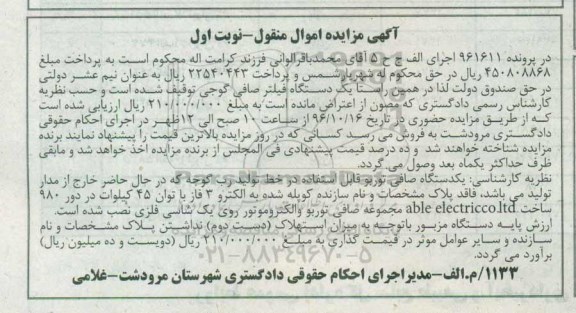 آگهی مزایده اموال منقول–نوبت اول
در پرونده ۹۶۱۶۱۱ اجرای الف ج ح ۵ آقای محمدباقرالوانی فرزند کرامت اله محکوم است به پرداخت مبلغ
۴۵۰۸۰۸۸۶۸ ریال در حق محکوم له شهریارشمس و پرداخت ۲۲۵۴۰۴۴۳ ریال به عنوان نیم عشر دولتی
در حق صندوق دولت لذا در همین راستا یک دستگاه فیلتر صافی گوجی توقیف شده است و حسب نظریه
کارشناس رسمی دادگستری که مصون از اعتراض مانده است به مبلغ ۲۱۰/۰۰۰/۰۰۰ ریال ارزیابی شده است
که از طریق مزایده حضوری در تاریخ ۹۶/۱۰/۱۶ از ساعت ۱۰ صبح الی ۱۲ظهر در اجرای احکام حقوقی
دادگستری مرودشت به فروش می رسد کسانی که در روز مزایده بالاترین قیمت را پیشنهاد نمایند برنده
مزایده شناخته خواهند شد و ده درصد قیمت پیشنهادی فی المجلس از برنده مزایده اخذ خواهد شد و مابقی
ظرف حداکثر یکماه بعد وصول می گردد.
نظریه کارشناسی: یکدستگاه صافی توربو قابل استفاده دو خط تولید رب گوجه که در حال حاضر خارج از مدار
تولید می باشد، فاقد پلاک مشخصات و نام سازنده کوپله شده به الکترو ۳ فاز با توان ۴۵ کیلوات در دور ۹۸۰
ساخت able electricco.ltd مجموعه صافی توربو والکتروموتور روی یک شاسی فلزی نصب شده است.
ارزش پایه دستگاه مزبور باتوجه به میزان استهلاک (دست دوم) نداشتن پلاک مشخصات و نام
سازنده و سایر عوامل موثر در قیمت گذاری به مبلغ ۲۱۰/۰۰۰/۰۰۰ ریال (دویست و ده میلیون ریال)
برآورد می گردد.
۱۱۳۳/م.الف–مدیراجرای احکام حقوقی دادگستری شهرستان مرودشت–غلامی
۰۲۱-۸۸۳۴۹۶۷۰-۵